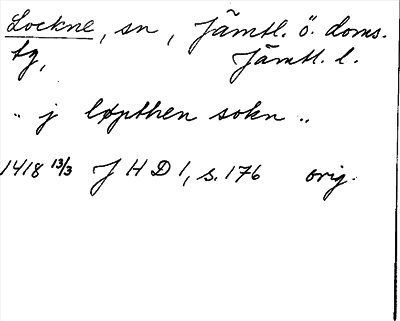 Lockne, sn, Jämtl. ö. doms.
tg, Jämtl. l.
.. j løpthen sokn ..
1418 13/3 J H D 1, s. 176 orig.